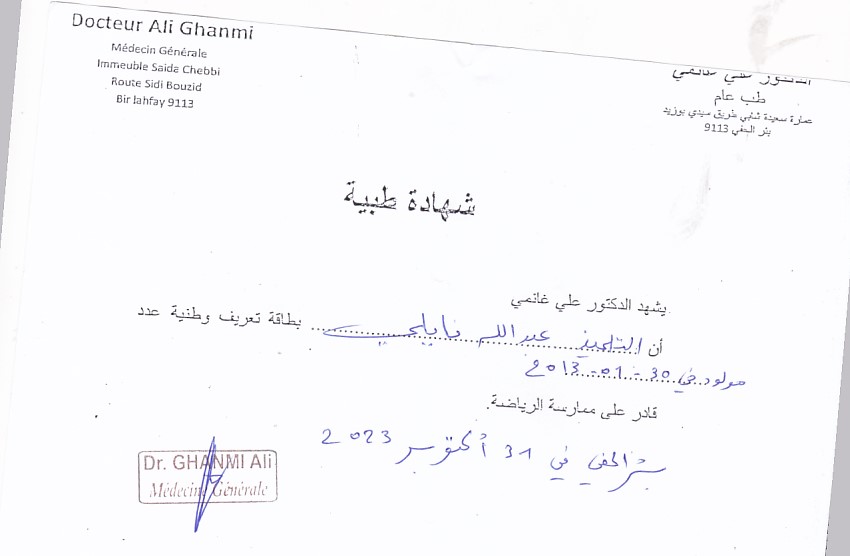 Docteur Ali Ghanmi
Médecin Générale
Immeuble Saida Chebbi
Route Sidi Bouzid
Bir lahfay 9113
الدكتور علي غانمي
طب عام
عمارة سعيدة شابي طريق سيدي بوزيد
بئر الحفي 9113
شهادة طبية
يشهد الدكتور علي غانمي
أن التلميذ عبد الله بطاقة تعريف وطنية عدد
مولود في 30-01-2013
قادر على ممارسة الرياضة.
بئر الحفي في 31 أكتوبر 2023
Dr. GHANMI Ali
Médecin Générale